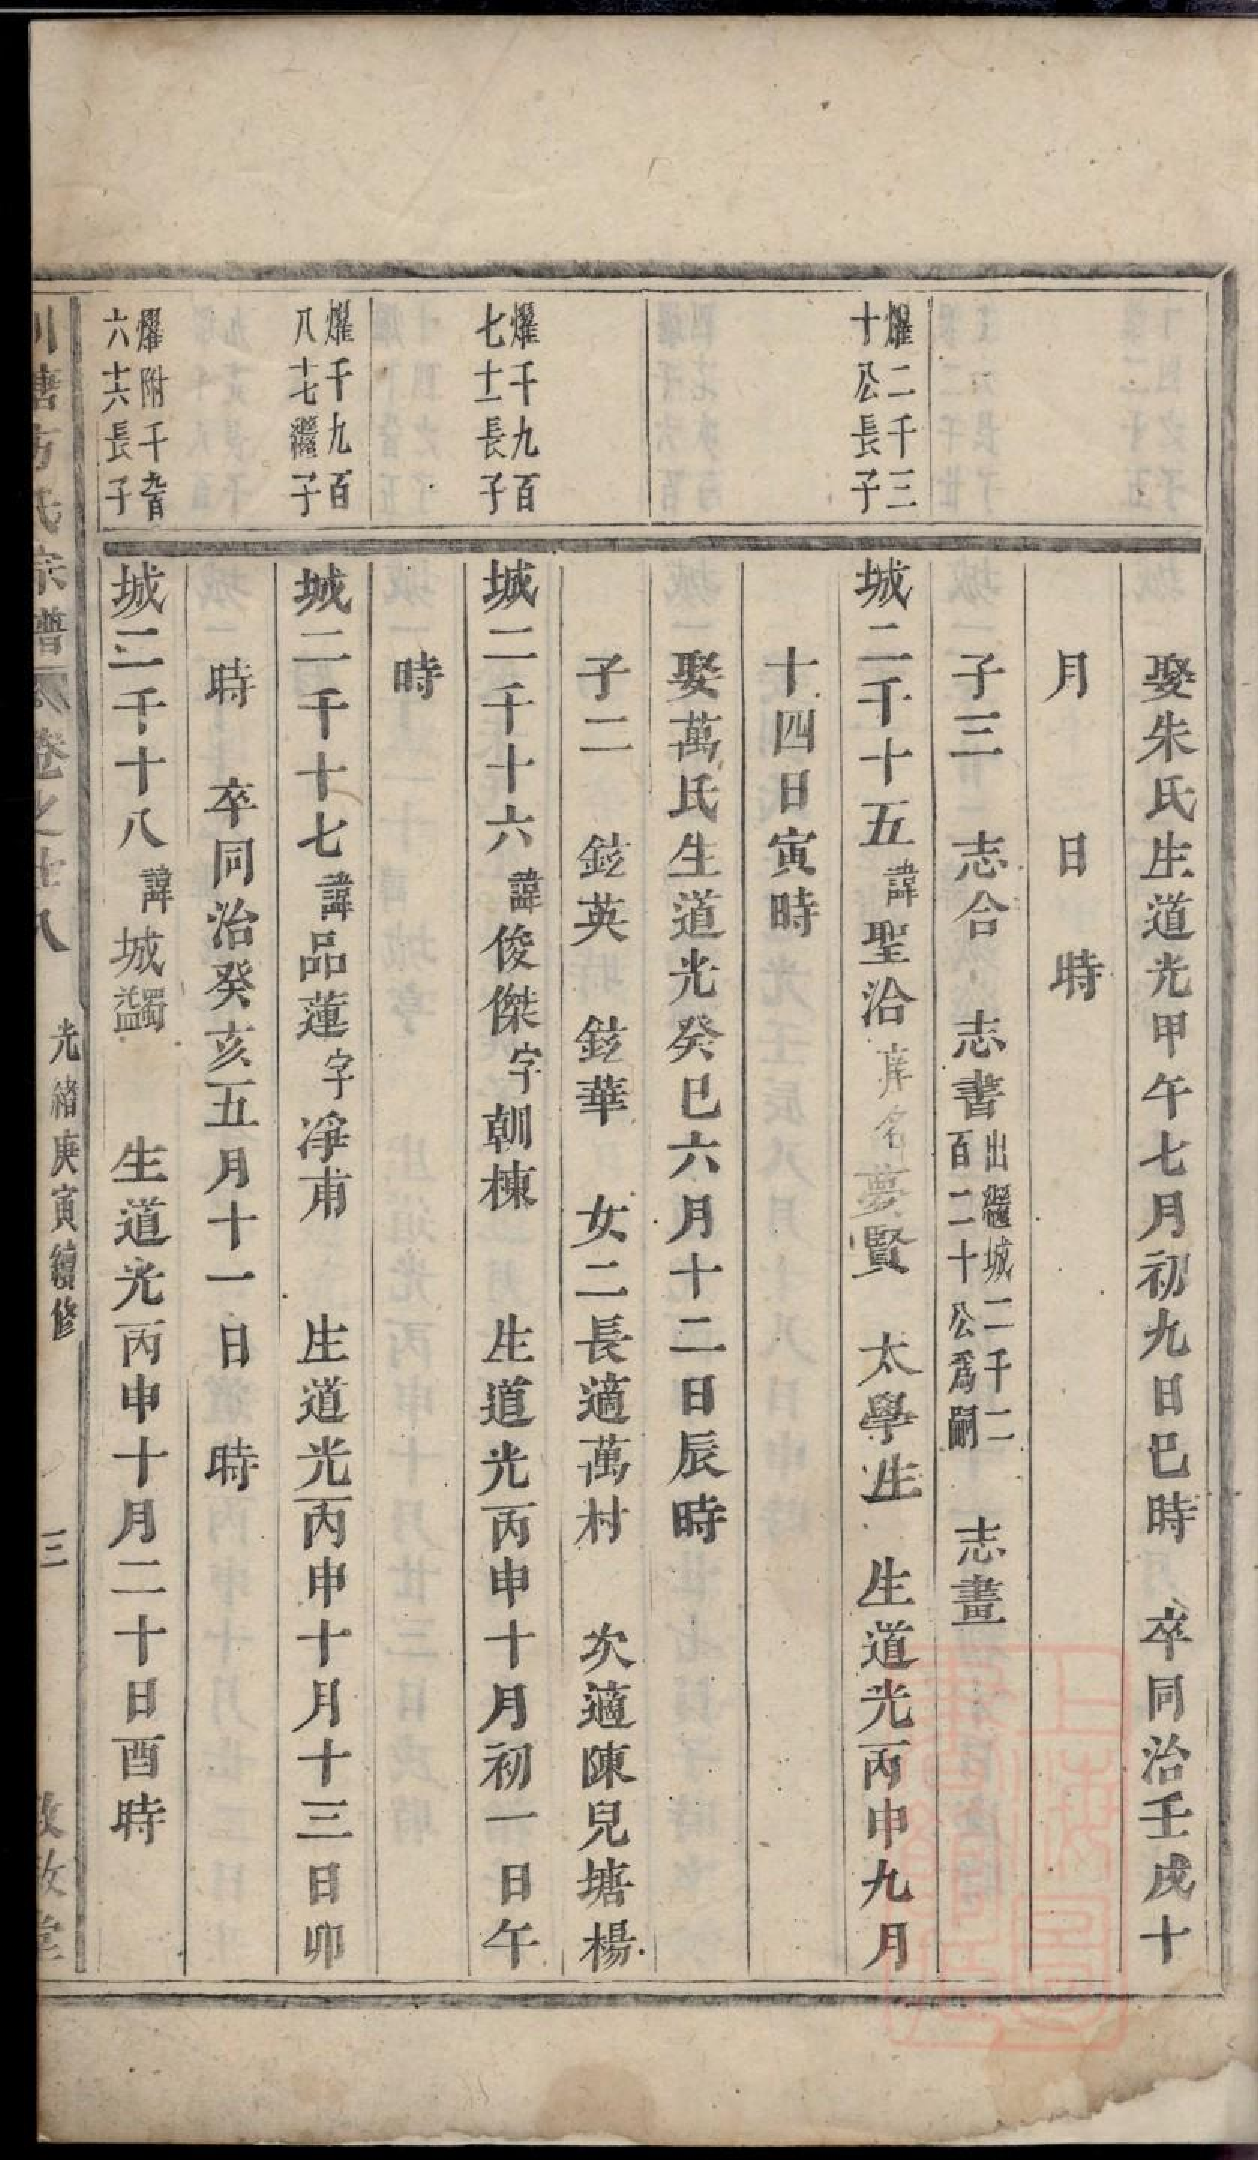 娶朱氏生道光甲午七月初九日巳時　卒同治壬戌十
月　日　時
子三　志合　志書出繼城二千二百二十公爲嗣　志畫
燿二千三十公長子
城二千十五諱聖治庠名夢賢　太學生　生道光丙申九月
十四日寅時
娶萬氏生道光癸巳六月十二日辰時
子二　鉉英　鉉華　女二長適萬村　次適陳兒塘楊
燿千九百七十一長子
城二千十六諱俊傑字朝棟　生道光丙申十月初一日午
時
燿千九百八十七繼子
城二千十七諱品蓮字凈甫　生道光丙申十月十三日卯
時　卒同治癸亥五月十一日　時
燿附千九百六十六長子
城二千十八諱城蠲　生道光丙申十月二十日酉時
塘方氏宗譜　卷之廿八　光緒庚寅續修　三　敦教堂